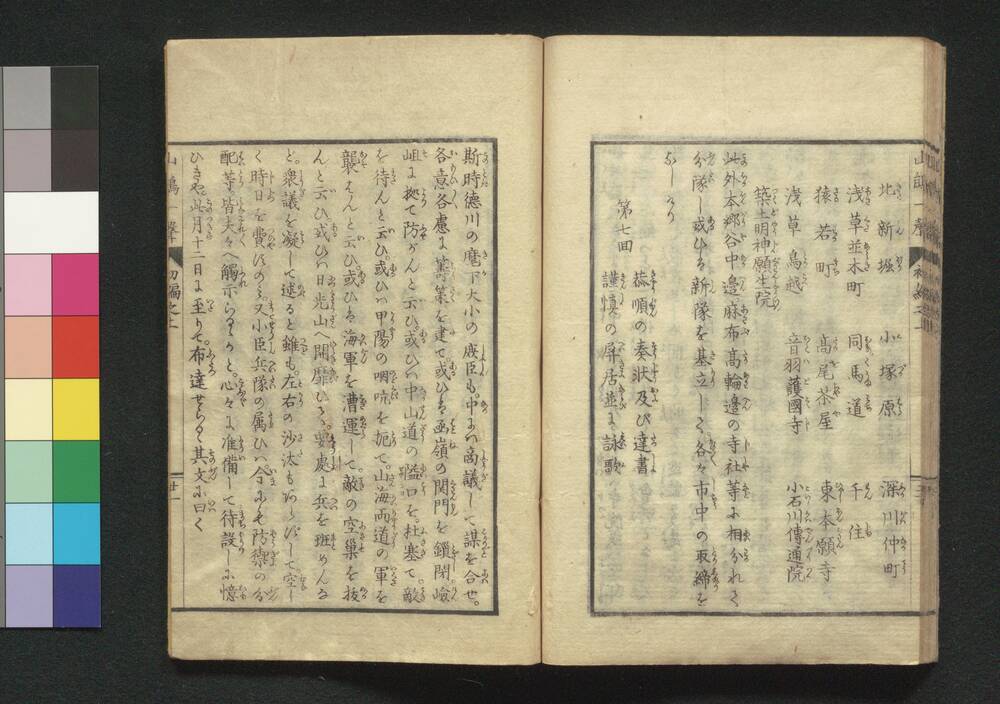 北新堀　小塚原　深川仲町
浅草並木町　同馬道　千住
猿若町　高尾茶屋　東本願寺
浅草鳥越　音羽護國寺　小石川傳通院
築土明神願生院
此外本郷谷中邊麻布高輪邊の寺社等に相分れて
分隊し或ひは新隊を基立して各々市中の取締を
なしたり
第七回
恭順の奏状及び達書
謹慎の屏居並に詠歌
斯時徳川の麾下大小の臣も中には商議して謀を合せ。
各意各慮に籌策を建て。或ひは函嶺の関門を鎖閉嶮
岨に拠て防がんと云ひ。或ひハ中山道の隘口を杜塞て。敵
を待んと云ひ。或ひハ甲陽の咽吭を扼て。山海両道の軍を
襲はんと云ひ或ひは海軍を漕運して。敵の空巣を抜
んと云ひ或ひハ日光山へ開靡ひる。要處に兵を班めんな
ど。衆議を凝して逑ると雖も。左右の沙汰もあらずして。空し
く時日を費すのミ。又小臣兵隊の属ひハ今にも防禦の分
配等皆夫々へ觸示らるゝかと。心々に准備して待設しに憶
ひきや此月十二日に至りて。布達せらるゝ其文に曰く
山鵑一聲　初編之上　廿一